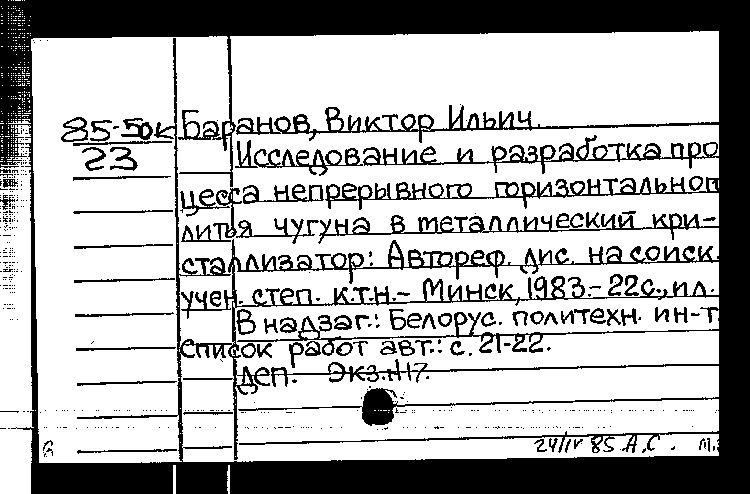 85-50к Баранов, Виктор Ильич.
23 Исследование и разработка про
цесса непрерывного горизонтальног
литья чугуна в металлический кри-
сталлизатор: Автореф. дис. на соиск.
учен. степ. к.т.н.- Минск, 1983.- 22с., ил.
В надзаг.: Белорус. политехн. ин-т.
Список работ авт.: с. 21-22.
Деп. Экз.№17.
24/IV 85 А.С. М.